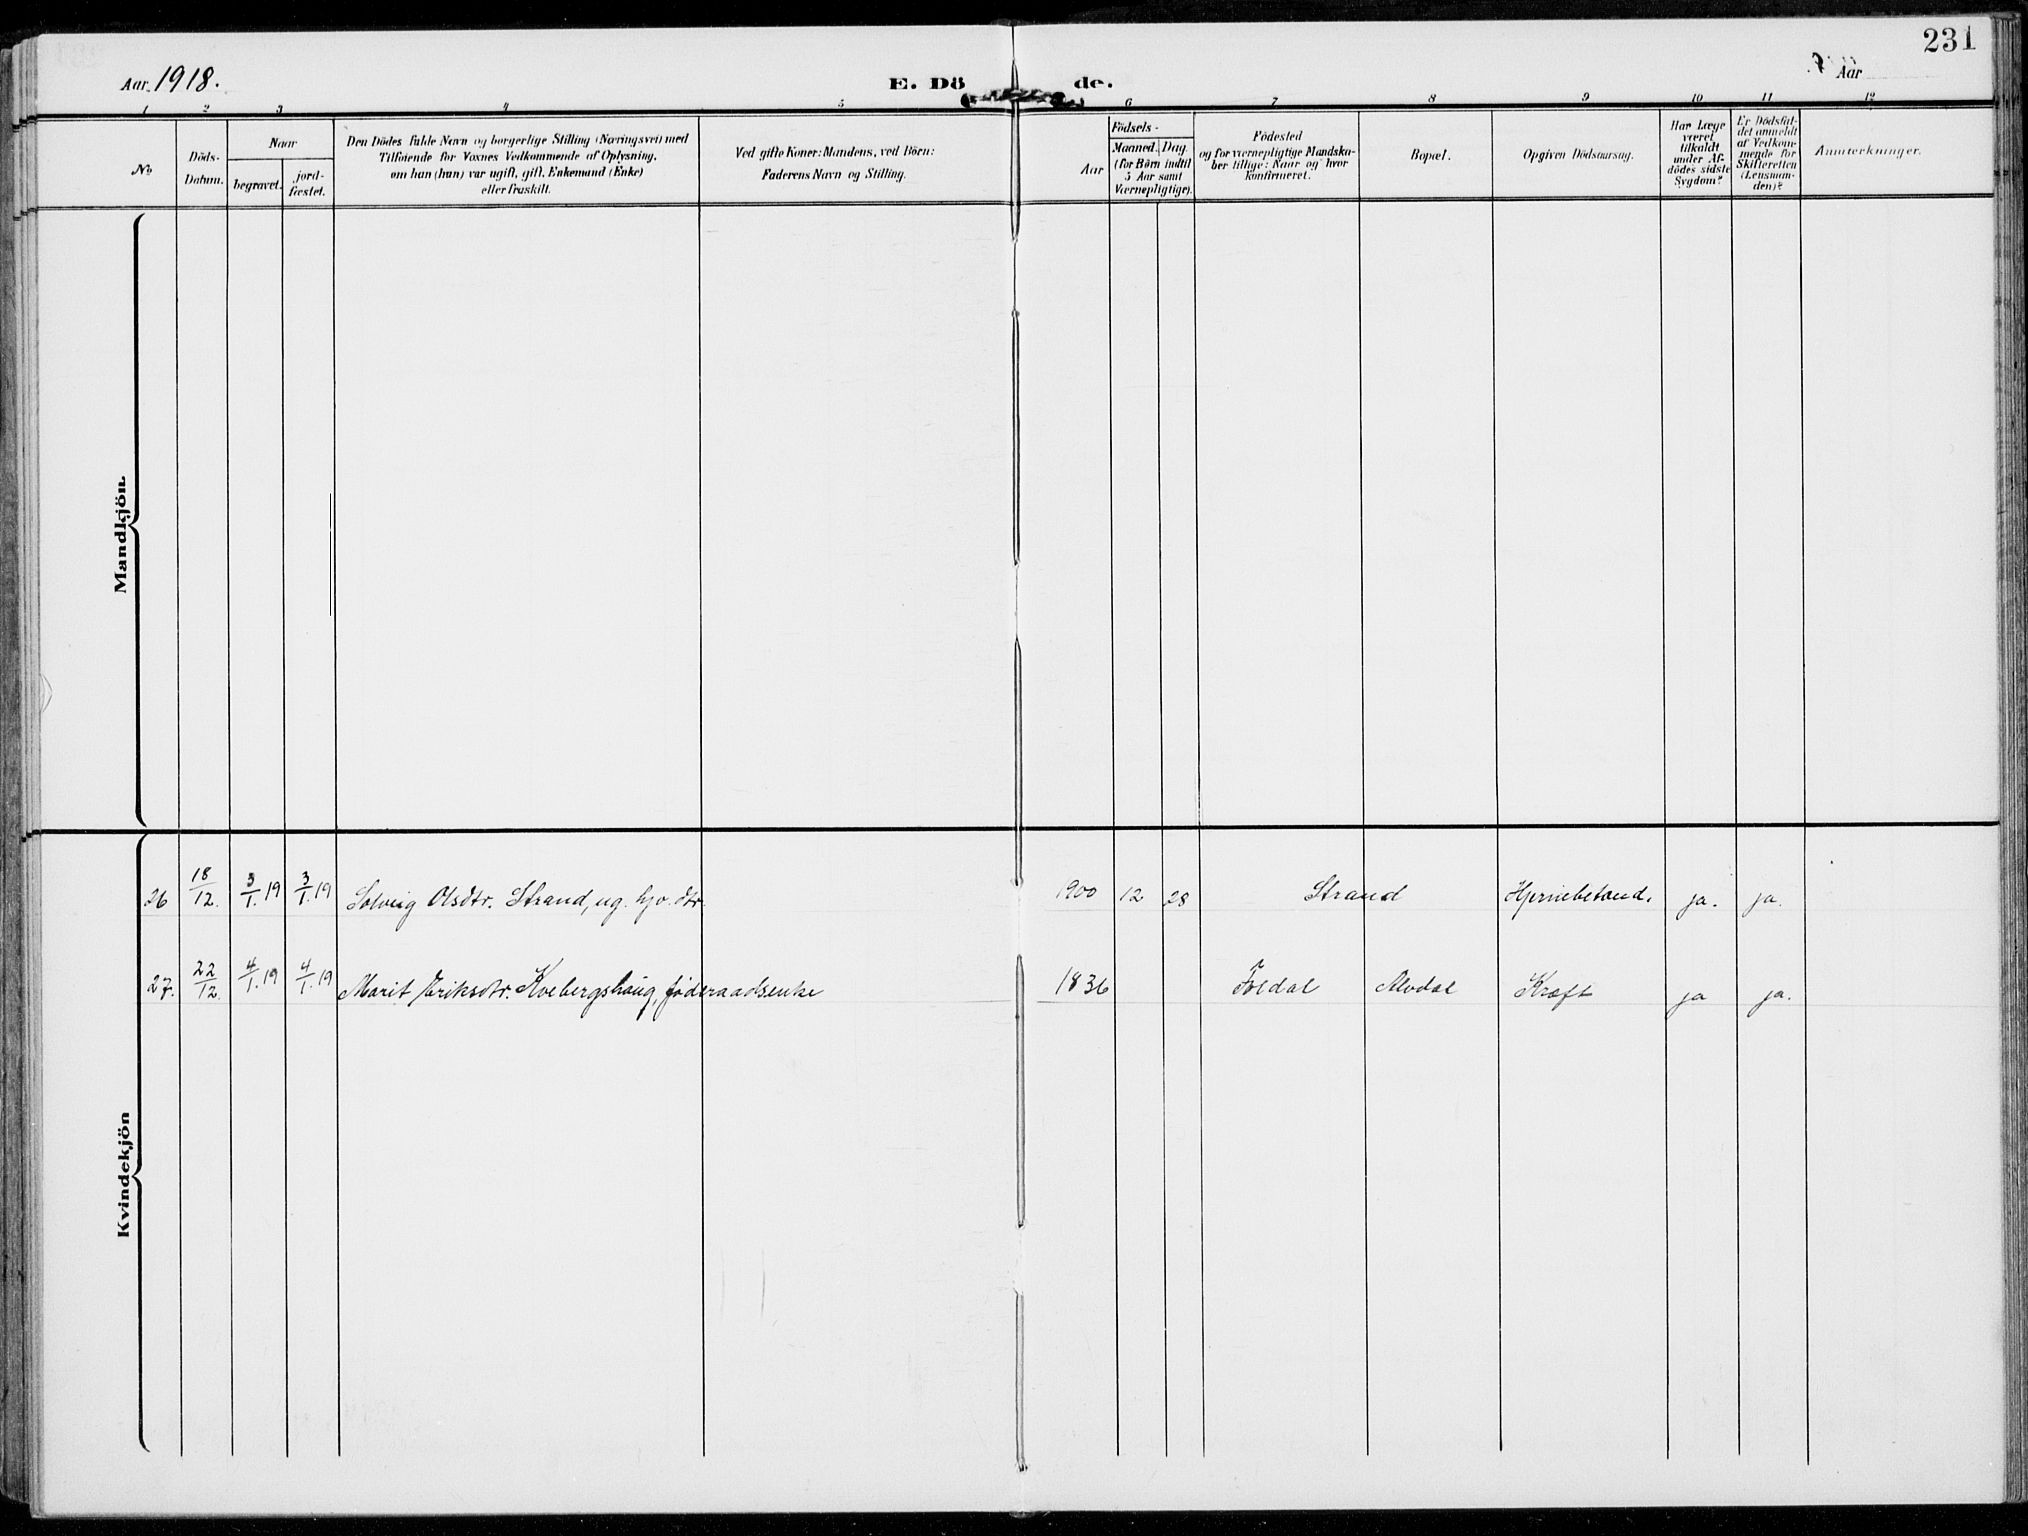 231
Aar 1918.
E. Dö de.
Aar
1 2 3 4 5 6 7 8 9 10 11 12
No
Döds-
Datum.
Naar
begravet.
jord-
fæstet.
Den Dödes fulde Navn og borgerlige Stilling (Næringsvei) med
Tilföiende for Voxnes Vedkommende af Oplysning,
om han (hun) var ugift, gift, Enkemand (Enke)
eller fraskilt.
Ved gifte Koner: Mandens, ved Börn:
Faderens Navn og Stilling.
Födsels-
Aar
Maaned. Dag.
(for Börn indtil
5 Aar samt
Værnepligtige).
Födested
og for værnepligtige Mandska-
ber tillige: Naar og hvor
konfirmeret.
Bopæl.
Opgiven Dödsaarsag.
Har Læge
været
tilkaldt
under Af-
dödes sidste
Sygdom?
Er Dödsfal-
det anmeldt
af Vedkom-
mende for
Skifteretten
(Lensman-
den)?
Anmerkninger.
Mandkjön.
26 18/12. 3/1. 19 3/1. 19 Solveig Olsdtr. Strand, ug. hjv. dtr. 1900 12 28 Strand Hjernebetænd. ja. ja.
27. 22/12. 4/1. 19 4/1. 19 Marit Eriksdtr. Kvebergshaug, föderaadsenke 1836 Foldal Alvdal Kræft ja ja.
Kvindekjön